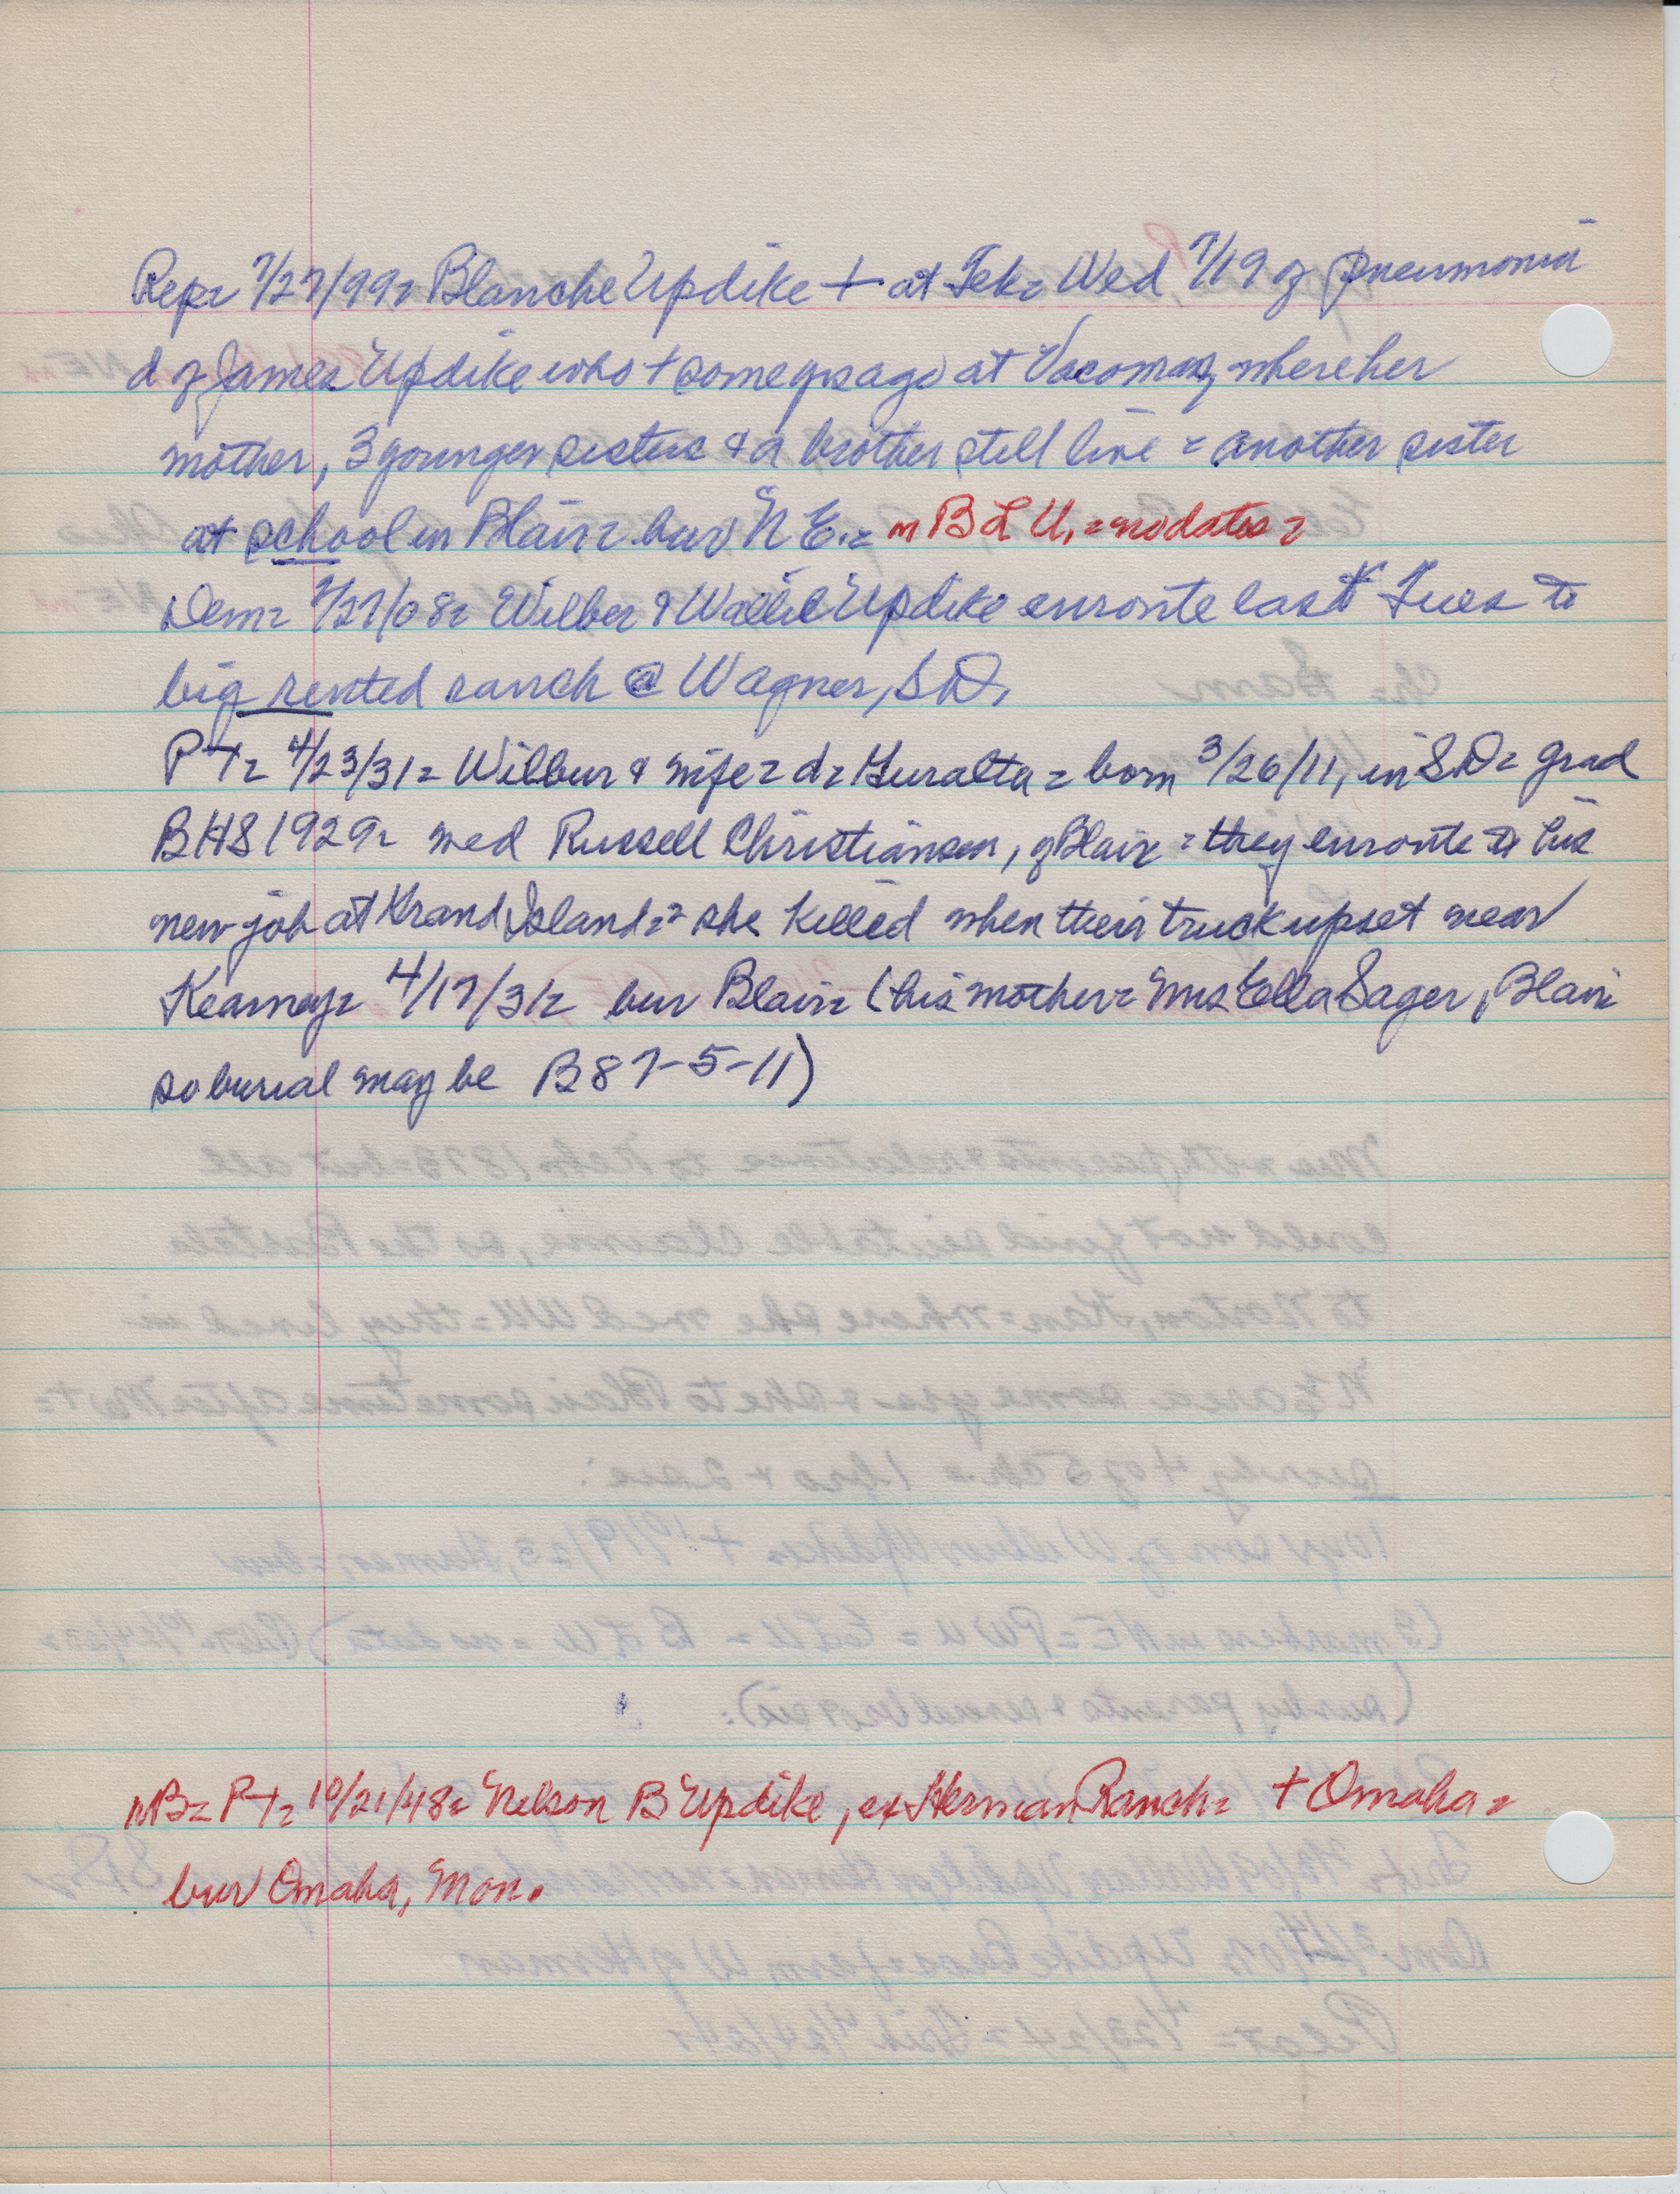 Rep= 7/27/99= Blanche Updike + at Tek= Wed 7/19 of pneumonia
d of James Updike who + some yrs ago at Vacoma, where her
mother, 3 younger sisters & a brother still live = another sister
at school in Blair= bur N E.= m B L U, = no dates =
Dem= 7/27/08= Wilber & Wallie Updike enroute last Tues to
big rented ranch @ Wagner, S.D.
PT= 4/23/31= Wilbur & wife = d= = born 3/26/11, in S.D.= grad
BHS 1929= med Russell Christiansen, of Blair = they enroute to his
new job at Grand Island = she killed when their truck upset near
Kearney= 4/17/31= bur Blair= (his mother= Mrs Ella Sager, Blair
so burial may be B87-5-11)
NB= PT= 10/21/48= Nelson B Updike, ex Herman Ranch= + Omaha =
bur Omaha, Mon.